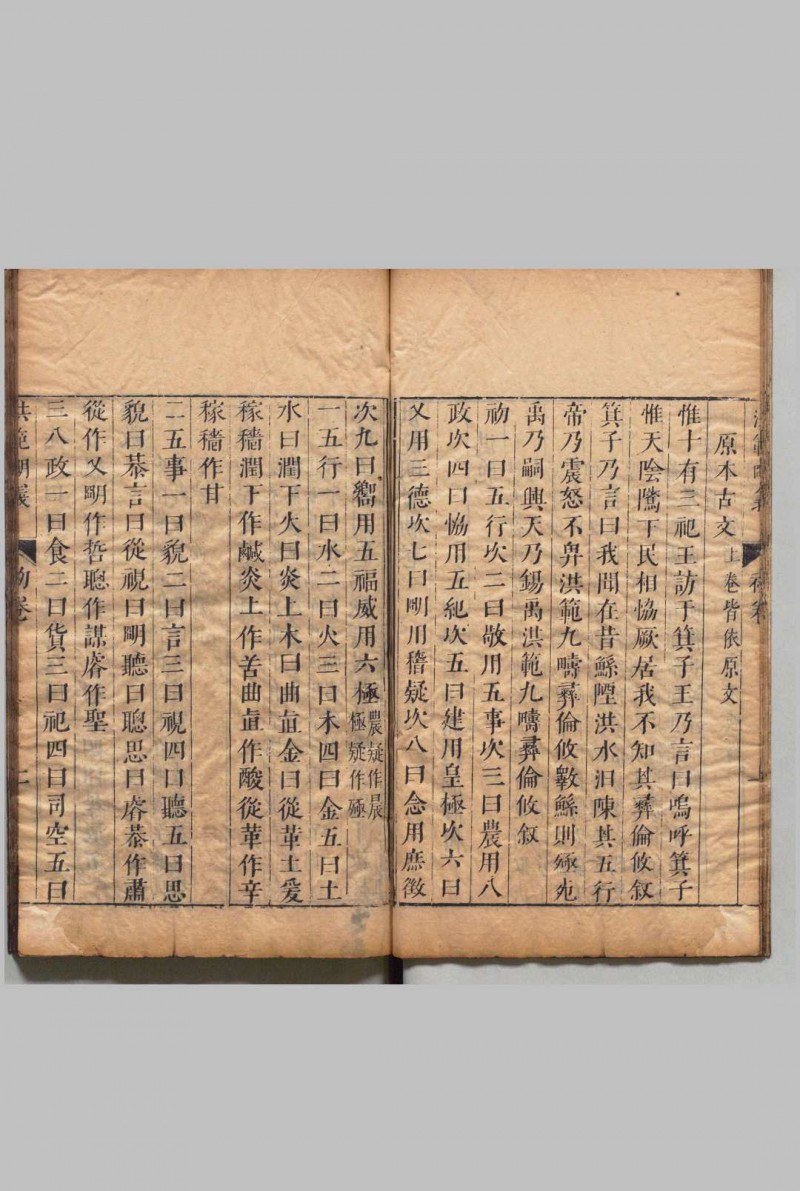 原本古文 上卷皆依原文
惟十有三祀王訪于箕子王乃言曰嗚呼箕子
惟天陰騭下民相恊厥居我不知其彝倫攸叙
箕子乃言曰我聞在昔鯀陻洪水汩陳其五行
帝乃震怒不畀洪範九疇彝倫攸斁鯀則殛死
禹乃嗣興天乃錫禹洪範九疇彝倫攸叙
初一曰五行次二曰敬用五事次三曰農用八
政次四曰恊用五紀次五曰建用皇極次六曰
乂用三德次七曰明用稽疑次八曰念用庶徵
次九曰嚮用五福威用六極 農疑作晨
極疑作殛
一五行一曰水二曰火三曰木四曰金五曰土
水曰潤下火曰炎上木曰曲直金曰從革土爰
稼穡潤下作鹹炎上作苦曲直作酸從革作辛
稼穡作甘
二五事一曰貌二曰言三曰視四曰聽五曰思
貌曰恭言曰從視曰明聽曰聰思曰睿恭作肅
從作乂明作哲聰作謀睿作聖
三八政一曰食二曰貨三曰祀四曰司空五曰
洪範明義 初卷 二